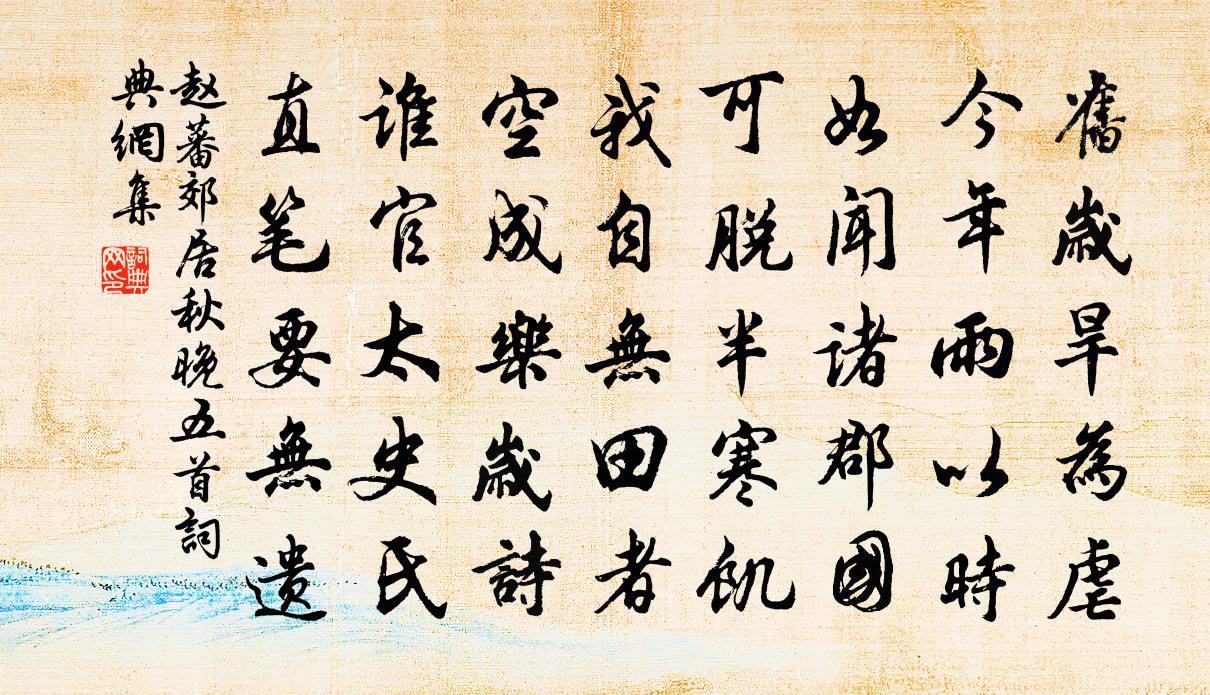 舊歲旱為虐
今年雨以時
如聞諸郡國
可脫半寒飢
我自無田者
空成樂歲詩
誰官太史氏
直笔要無遗
赵蕃郊居秋晚五首詞
典網集
詞典
网印